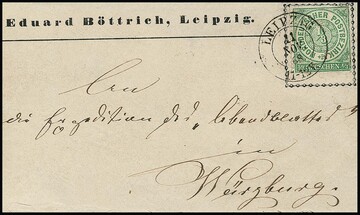 Eduard Böttrich, Leipzig.
LEIPZIG
11
NOV
NORDDEUTSCHER POSTBEZIRK
GROSCHEN
An
die Expedition des „Abendblattes"
in
Würzburg.